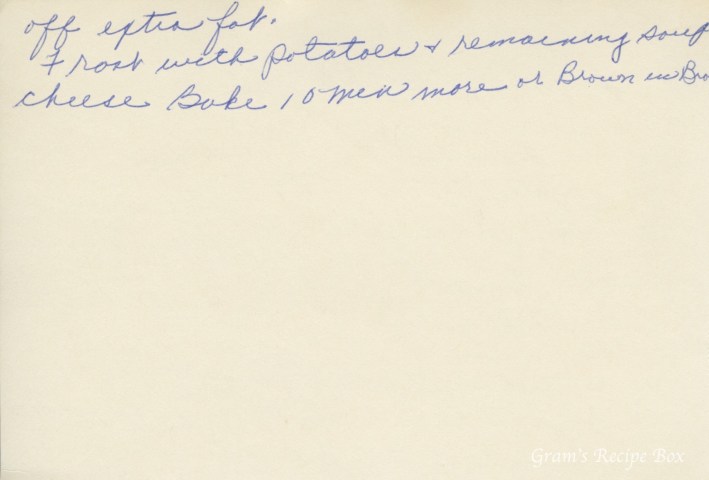 off extra fat.
Frost with potatoes & remaining soup
cheese Bake 10 min more or Brown in Bro
Gram's Recipe Box